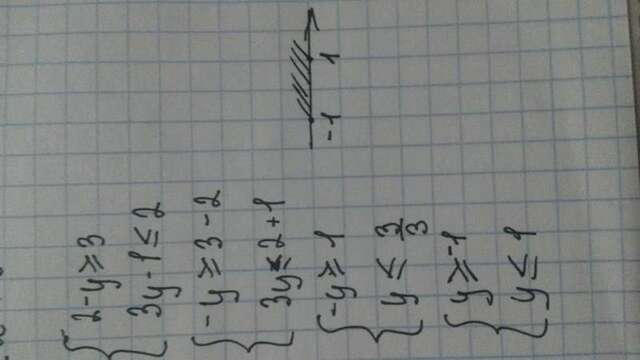 2-y≥3
3y-1≤2
-y≥3-2
3y≤2+1
-1 1
-y≥1
y≤3/3
y≥-1
y≤1